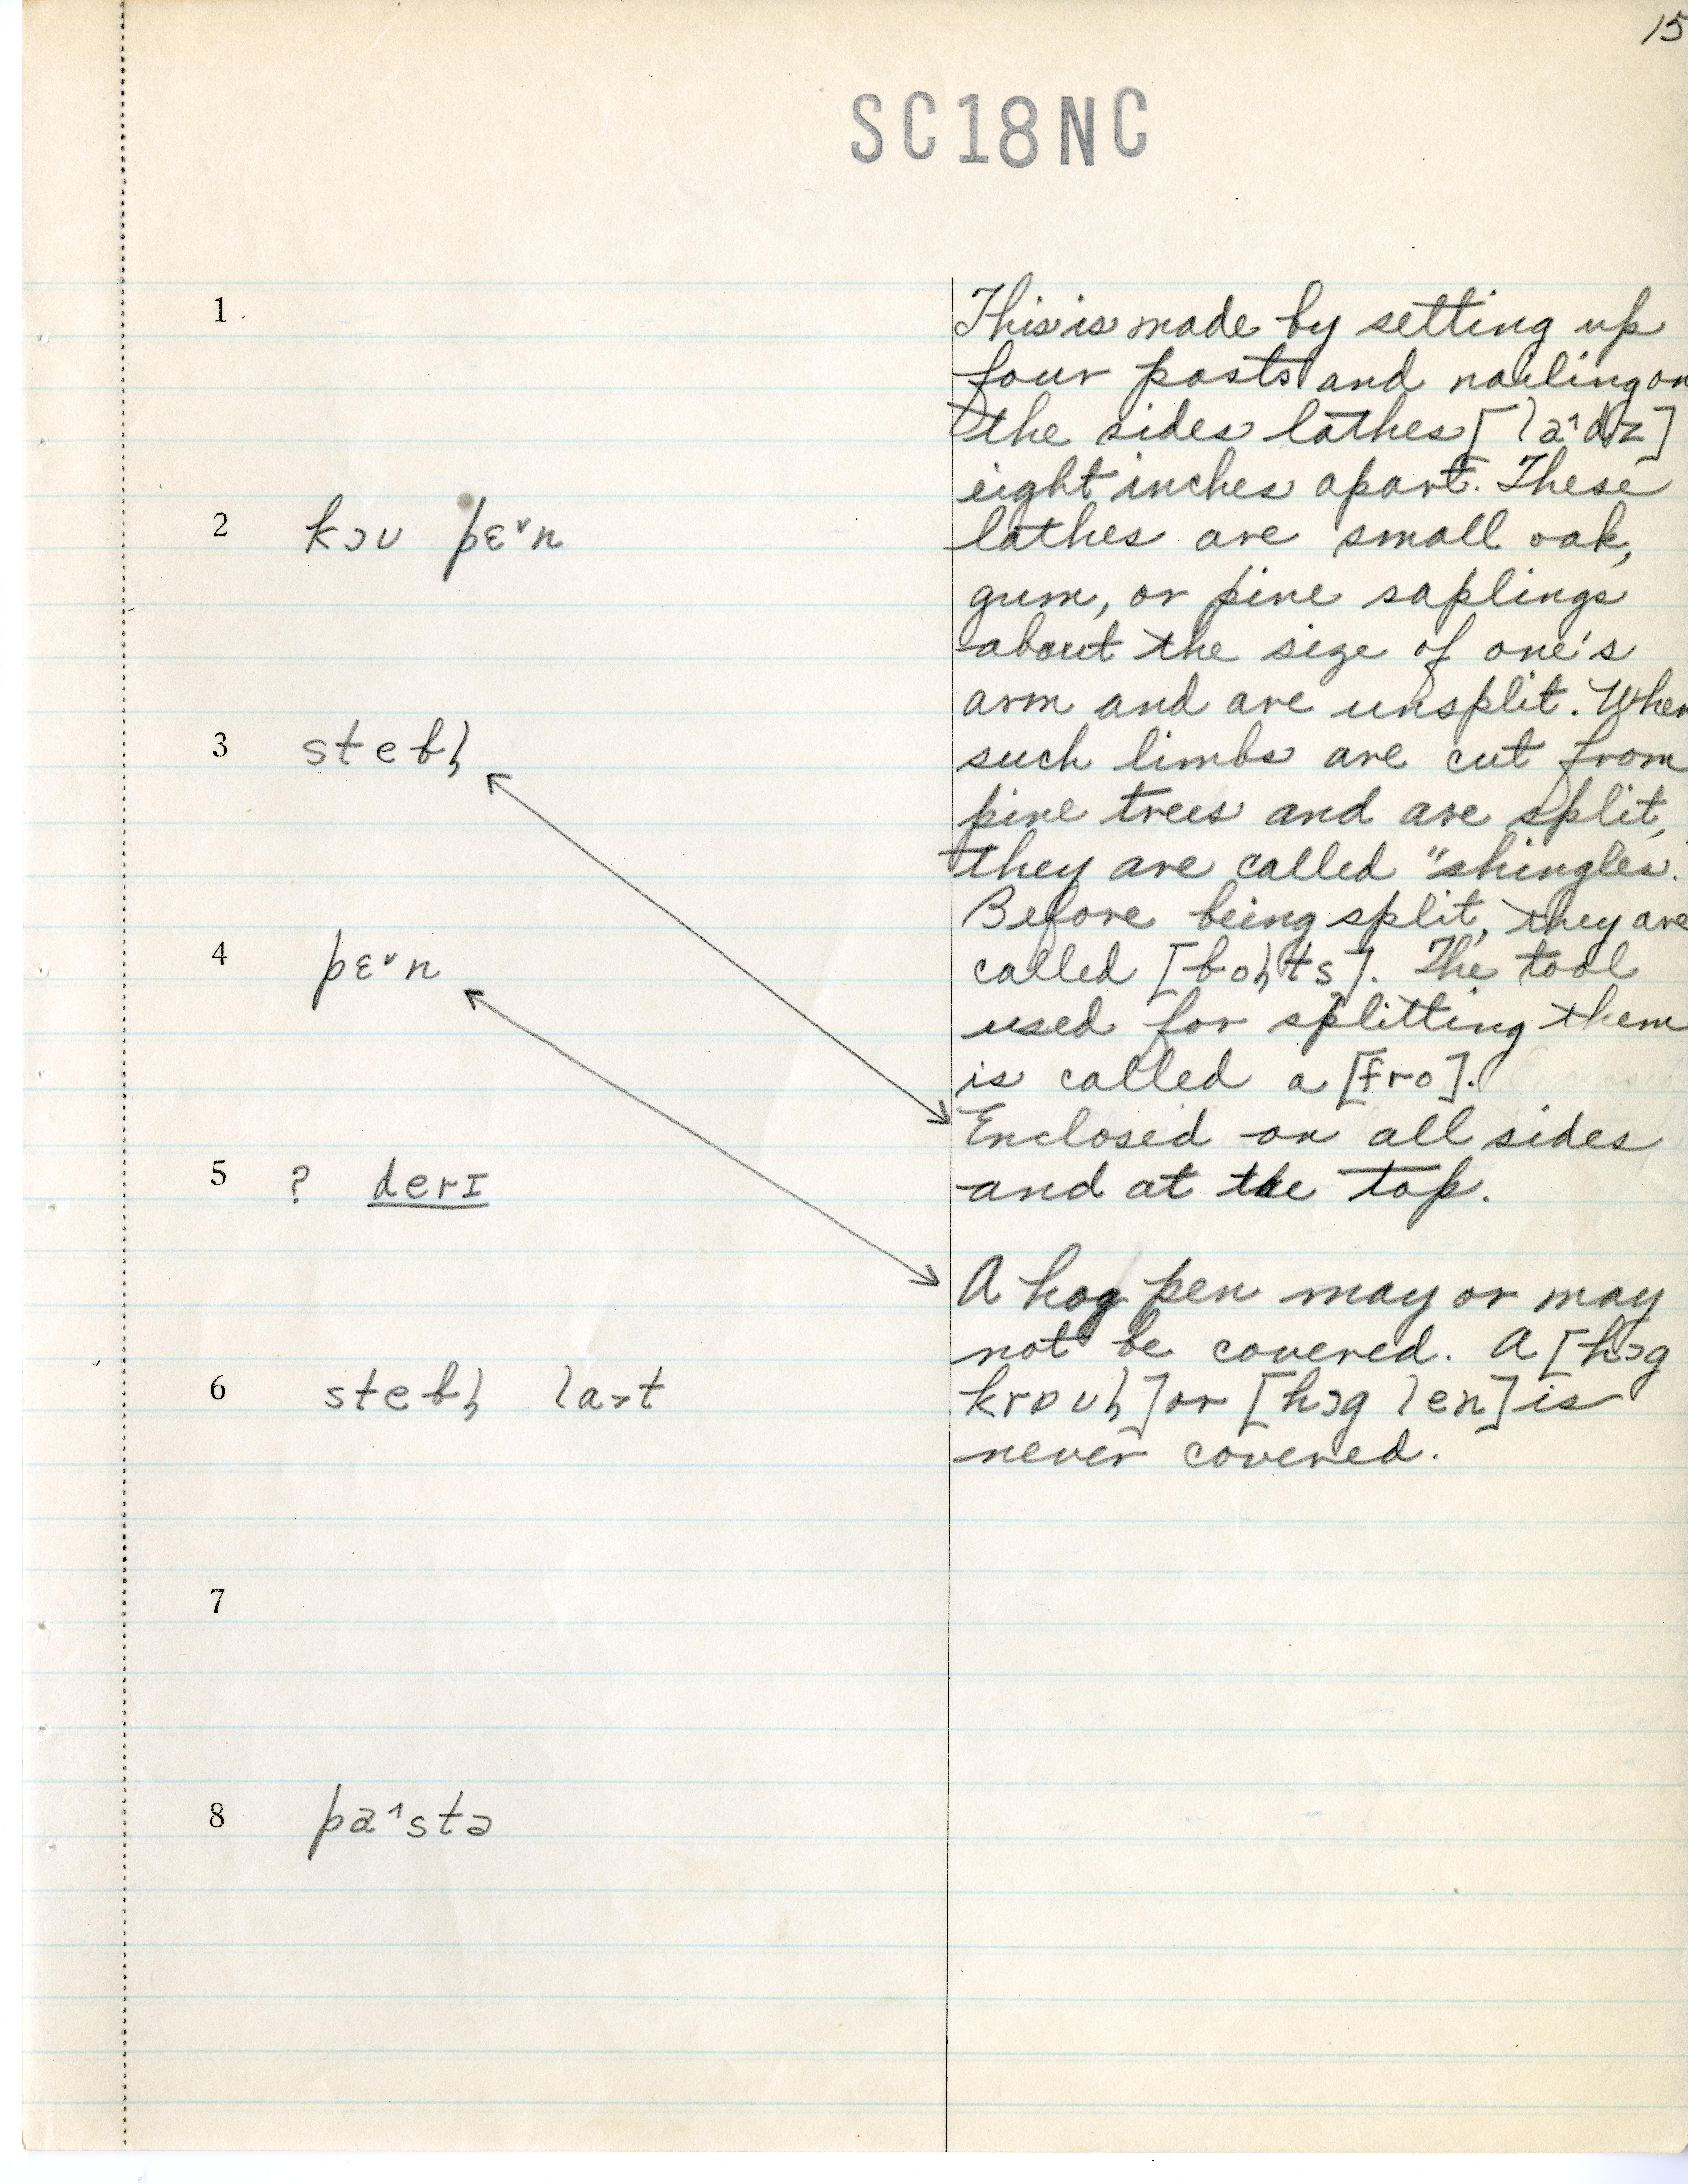 15
SC18NC
1
2 kɔʊ pɛˇn
3 stebɫ̩
4 pɛˇn
5 ? derɪ
6 stebɫ̩ la˃t
7
8 pa˄stə
This is made by setting up
four posts and nailing on
the sides lathes [la˄dz]
eight inches apart. These
lathes are small oak,
gum, or pine saplings
about the size of one's
arm and are unsplit. When
such limbs are cut from
pine trees and are split,
they are called "shingles."
Before being split, they are
called [boɫts]. The tool
used for splitting them
is called a [fro].
Enclosed on all sides
and at the top.
A hog pen may or may
not be covered. A [hɔg
krɒʊɫ] or [hɔg len] is
never covered.